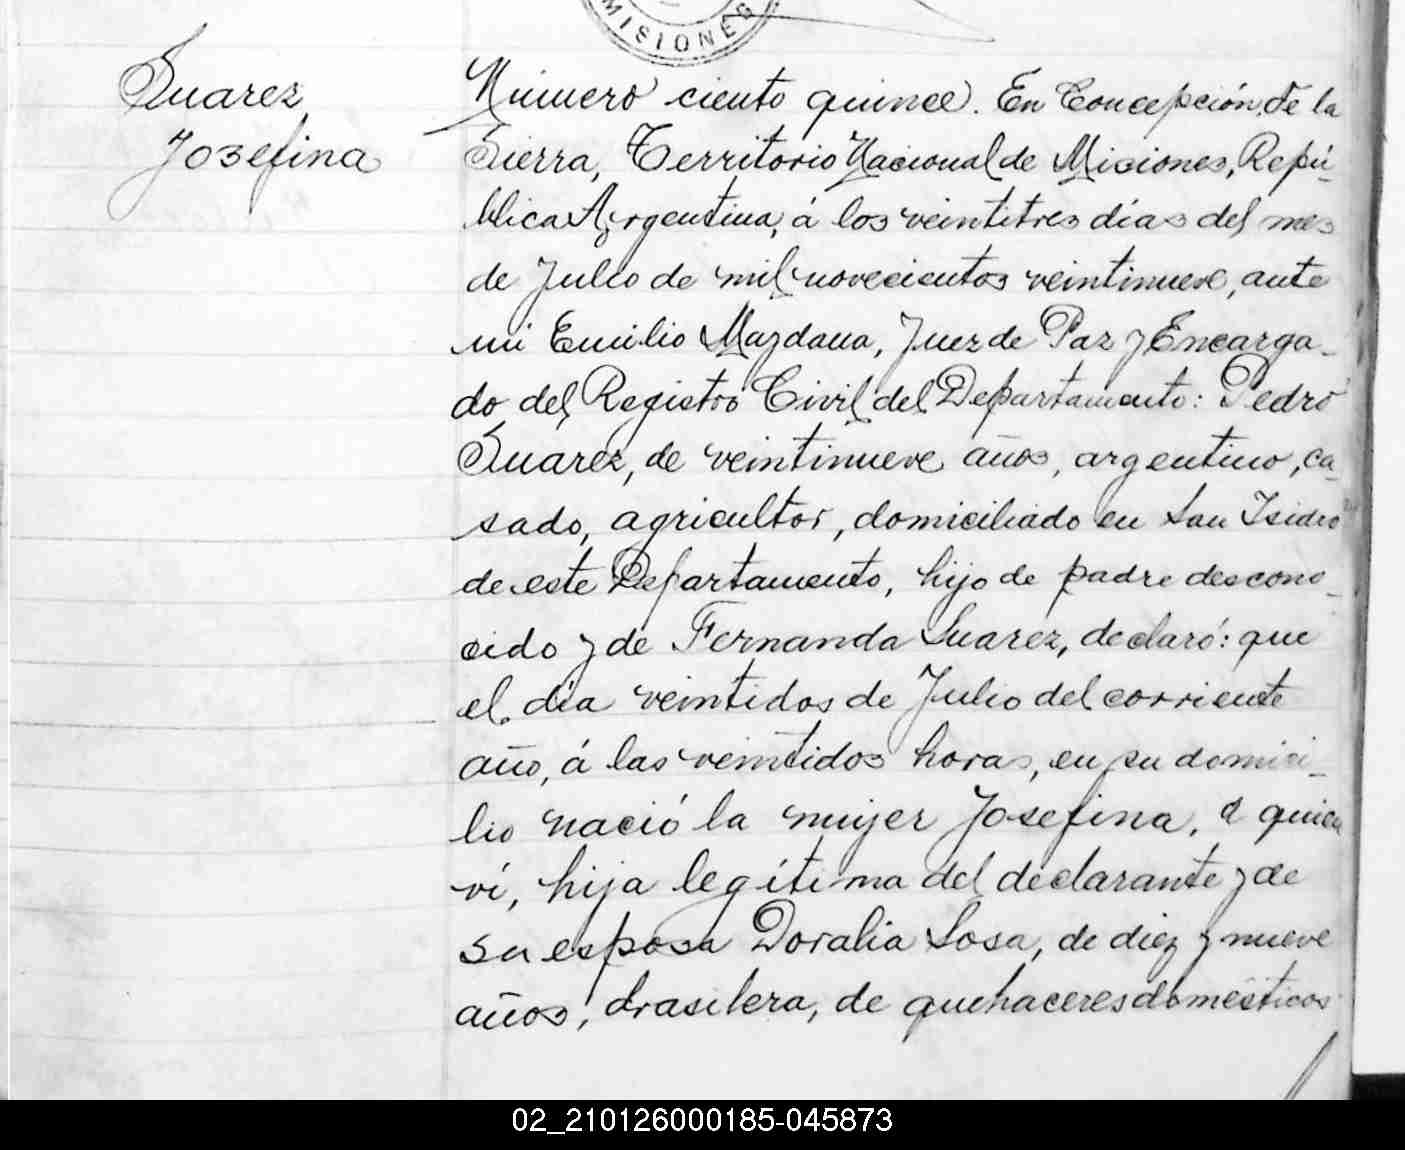 MISIONES
Suarez
Josefina
Número ciento quince. En Concepción de la
Sierra, Territorio Nacional de Misiones, Repú-
blica Argentina, á los veintitres días del mes
de Julio de mil novecientos veintinueve, ante
mi Emilio Mazdana, Juez de Paz y Encarga-
do del Registro Civil del Departamento: Pedro
Suarez, de veintinueve años, argentino, ca-
sado, agricultor, domiciliado en San Isidro
de este Departamento, hijo de padre descono-
cido y de Fernanda Suarez, declaró: que
el día veintidos de Julio del corriente
año, á las veintidos horas, en su domici-
lio nació la mujer Josefina, a quien
ví, hija legítima del declarante y de
su esposa Doralia Sosa, de diez y nueve
años, brasilera, de quehaceres domésticos
02_210126000185-045873